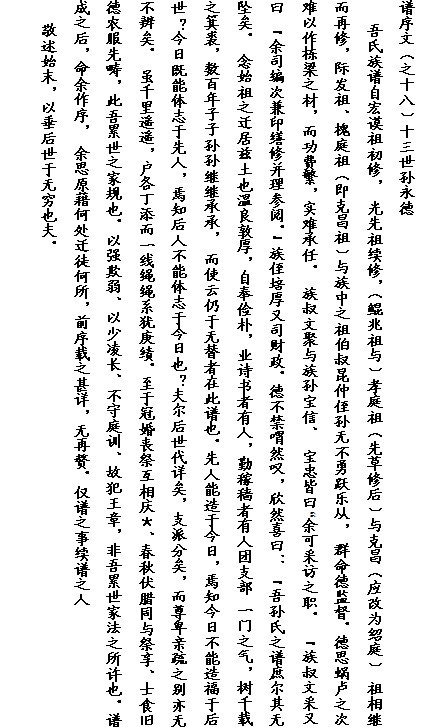 谱序文（之十八）十三世孙永德
吾氏族谱自宏谟祖初修，光先祖续修，（鲲兆祖与）孝庭祖（先草修后）与克昌（应改为绍庭）祖相继
而再修，际发祖、槐庭祖（即克昌祖）与族中之祖伯叔昆仲侄孙无不勇跃乐从，群命德监督。德思蜗卢之次
难以作栋梁之材，而功费繁，实难承任。族叔文聚与族孙宝信、宝忠皆曰：余可采访之职。「族叔文采又
曰「余司编次兼印缮修并理参阅。」族侄培厚又司财政。德不禁喟然叹，欣然喜曰：「吾孙氏之谱庶尔其无
坠矣。念始祖之迁居兹土也温良敦厚，自奉俭朴，业诗书者有人，勤稼穑者有人团支部一门之气，树千载
之箕裘，数百年子子孙孙继继承承，而使云仍于无替者在此谱也。先人能造于今日，焉知今日不能造福于后
世？今日既能体志于先人，焉知后人不能体志于今日也？夫尔后世代详矣，支派分矣，而尊卑亲疏之别亦无
不辨矣。虽千里遥遥，户各丁添而一线绳绳系犹庚续。至于冠婚丧祭互相庆*、春秋伏腊同与祭享、士食旧
德农服先畴，此吾累世之家规也。以强欺弱、以少凌长、不守庭训、故犯王章，非吾累世家法之所许也。谱
成之后，命余作序，余思原籍何处迁徒何所，前序载之甚详，无再赘。仅谱之事续谱之人
敬述始末，以垂后世于无穷也夫。